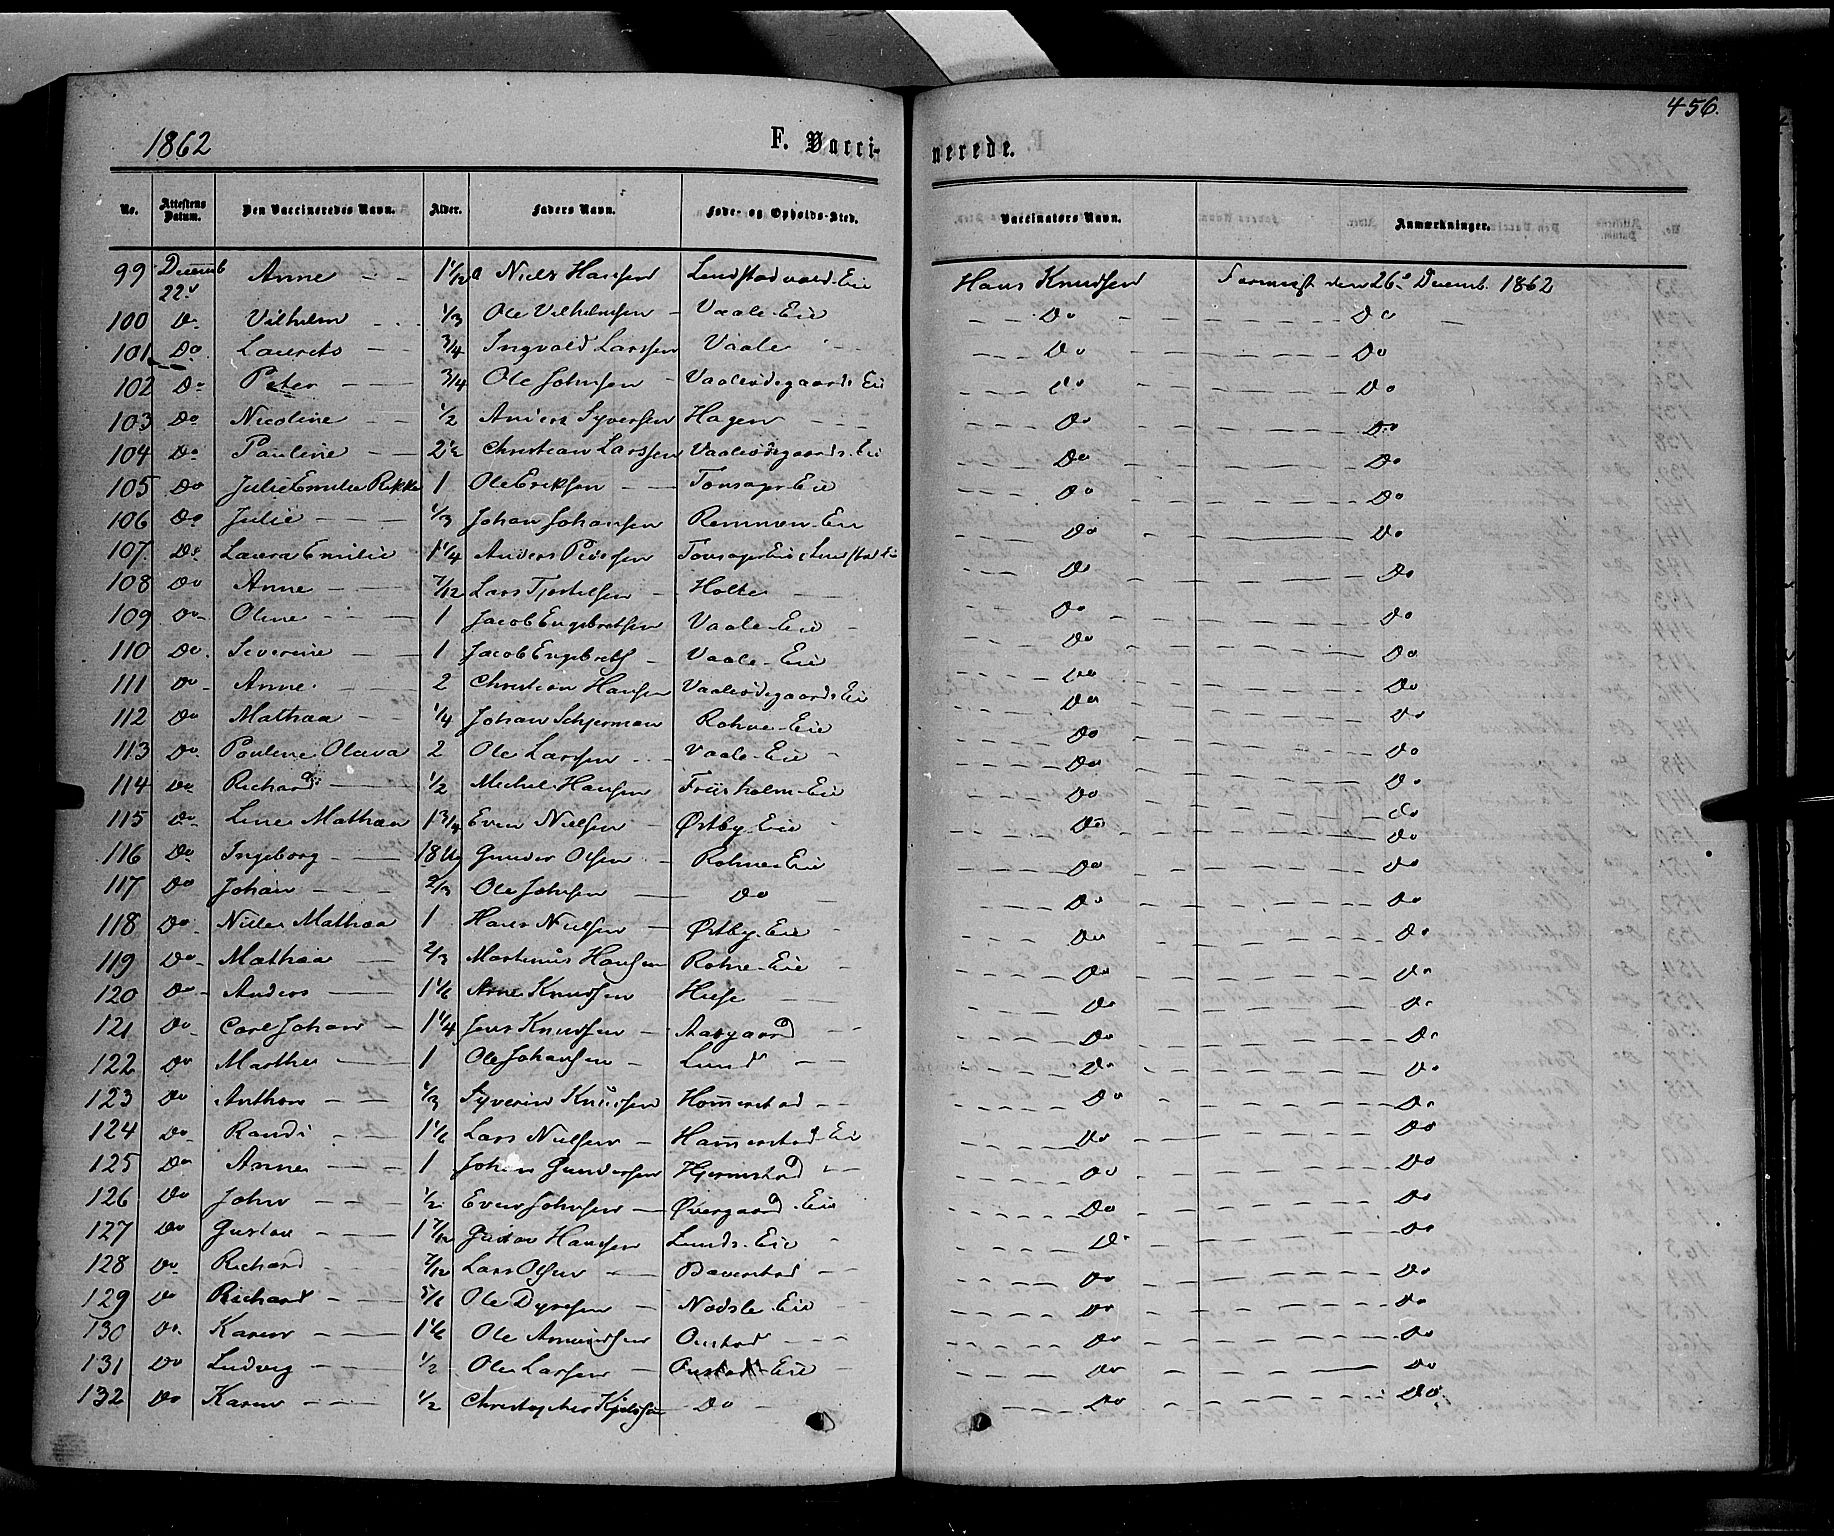 456.
1862 F. Vacci- nerede.
No. Attestens Datum. Den Vaccineredes Navn. Alder. Faders Navn. Føde- og Opholds-Sted. Vaccinators Navn. Anmærkninger.
99 Decemb 22d Anne 1 1/12 Niels Hansen Lundstadvold-Eie Hans Knudsen den 26de Decemb. 1862
100 Do Vilhelm 1/3 Ole Vilhelmsen Vaale-Eie Do Do
101 Do Laurits 3/4 Ingvald Larssen Vaale Do Do
102 Do Peter 3/4 Ole Johnsen Vaalesødegaards-Eie Do Do
103 Do Nicoline 1/2 Anders Syversen Hagen Do Do
104 Do Pauline 2 1/2 Christian Larssen Vaalesødegaards-Eie Do Do
105 Do Julie Emilie Rikke 1 Ole Eriksen Tonsager-Eie Do Do
106 Do Julie 1/3 Johan Johansen Remmen-Eie Do Do
107 Do Laura Emilie 1 1/4 Anders Pedersen Tonsager-Eie Do Do
108 Do Anne 7/12 Lars Holte Do Do
109 Do Oline 1 Jacob Engebretsen Vaale-Eie Do Do
110 Do Severine 1 Jacob Engebrets Vaale-Eie Do Do
111 Do Anne 2 Christian Hansen Vaalesødegaards-Eie Do Do
112 Do Mathea 1/4 Johan Schjerman Rohne-Eie Do Do
113 Do Pauline Olava 2 Ole Larssen Vaale-Eie Do Do
114 Do Richard 1/2 Michel Hansen Friisholm-Eie Do Do
115 Do Line Mathea 1 3/4 Even Nielsen Østby-Eie Do Do
116 Do Ingeborg 18 Ug Gunder Olsen Rohne-Eie Do Do
117 Do Johan 2/3 Ole Johnsen Do Do Do
118 Do Nille Mathea 1 Hans Nielsen Østby-Eie Do Do
119 Do Mathea 2/3 Martinus Hansen Rohne-Eie Do Do
120 Do Anders 1 1/6 Arne Knudsen Do Do
121 Do Carl Johan 1 1/4 Jens Knudsen Aasgaard Do Do
122 Do Marthe 1 Ole Johansen Lund Do Do
123 Do Anthon 1/3 Syverin Knudsen Hammerstad Do Do
124 Do Randi 1 1/6 Lars Nielsen Hammerstad-Eie Do Do
125 Do Anne 1 Johan Gundersen Hjermstad Do Do
126 Do John 1/2 Even Johnsen Øvergaard-Eie Do Do
127 Do Gustav 1 7/12 Gustav Hansen Lunds-Eie Do Do
128 Do Richard 7/12 Lars Olsen Baverstad Do Do
129 Do Richard 5/6 Ole Dyresen Nodsle-Eie Do Do
130 Do Karen 1 1/6 Ole Amundsen Onstad Do Do
131 Do Ludvig 1/2 Ole Larsen Onstad-Eie Do Do
132 Do Karen 1/2 Christopher Do Do Do